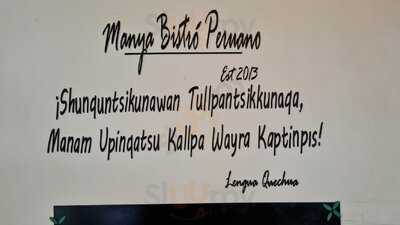 Manya Bistró Peruano
Est 2013
¡Shunquntsikunawan Tullpantsikkunaqa,
Manam Upinqatsu Kallpa Wayra Kaptinpis!
Lengua Quechua